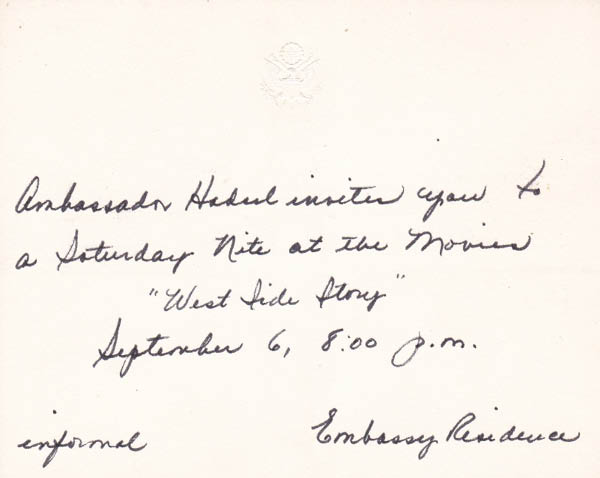 Ambassador Hadsel invites you to
a Saturday Nite at the Movies
"West Side Story"
September 6, 8:00 p.m.
informal Embassy Residence